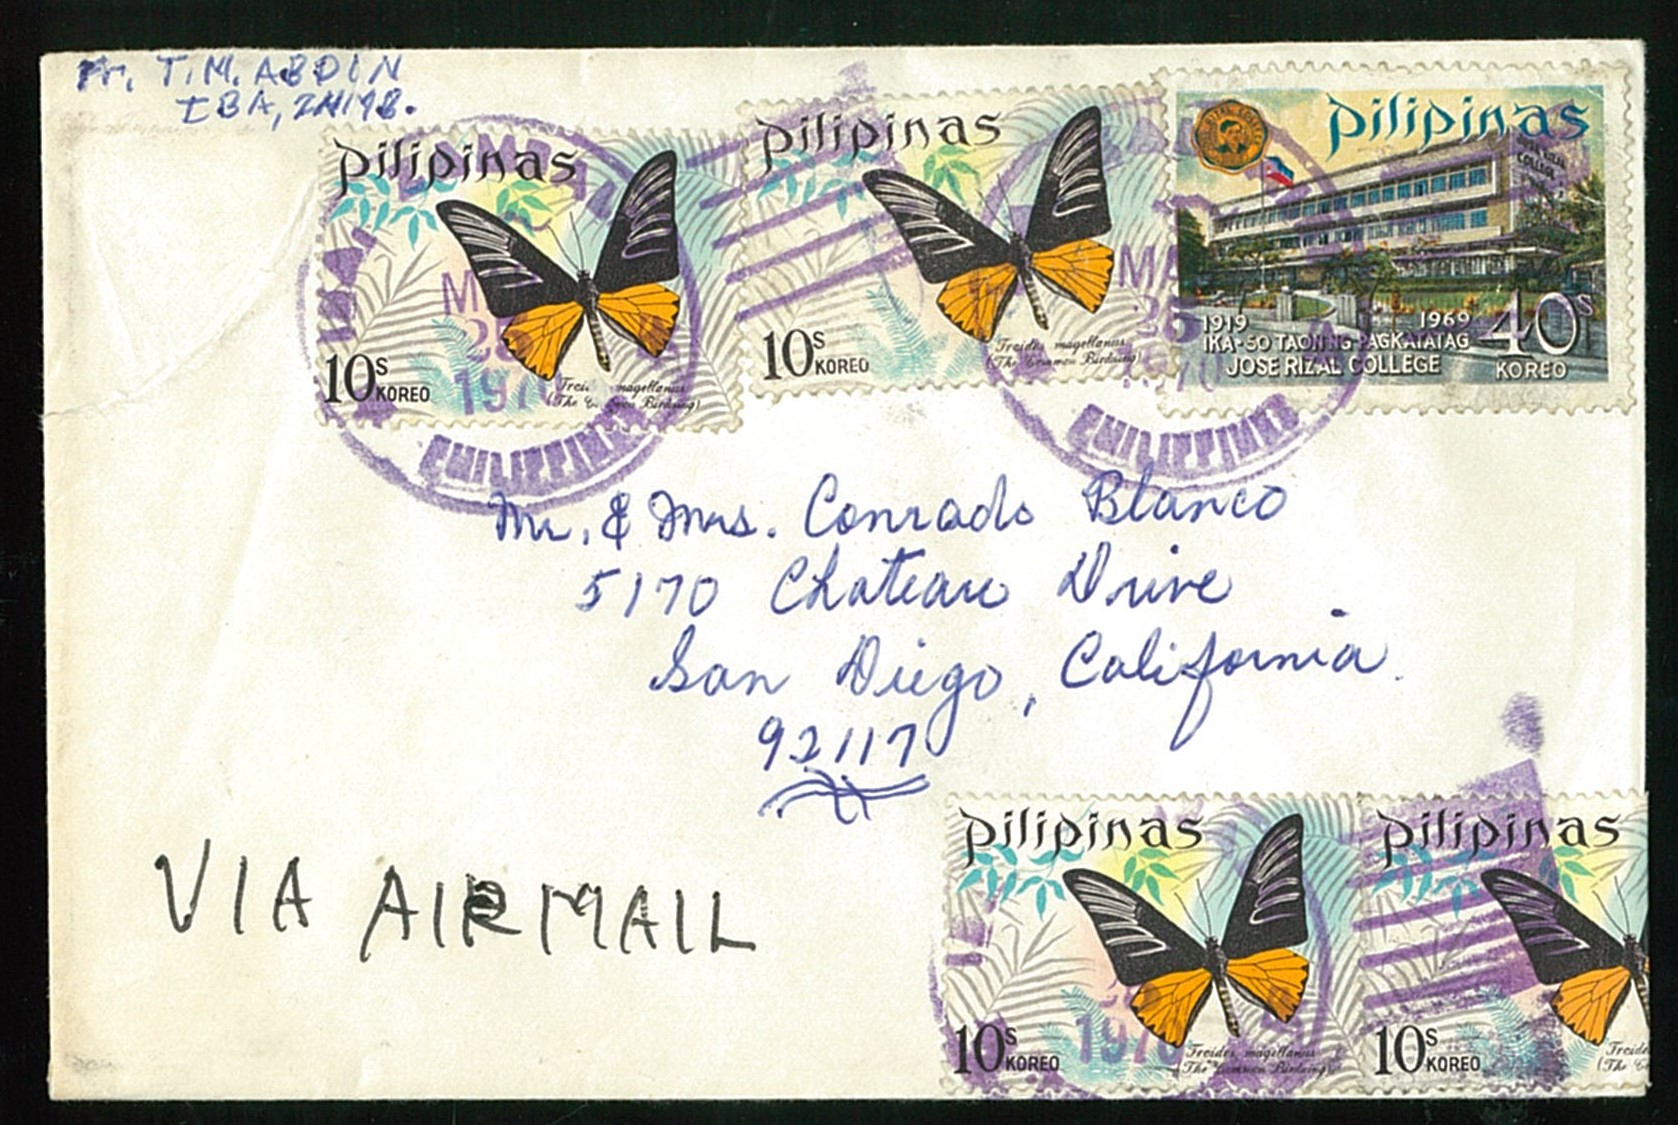 Fr. T.M. ABDON
IBA, ZAMB.
pilipinas
10s KOREO
Troides magellanus
(The Common Birdwing)
pilipinas
10s KOREO
Troides magellanus
(The Common Birdwing)
pilipinas
JOSE RIZAL
COLLEGE
1919 1969
IKA-50 TAON NG PAGKATATAG
JOSE RIZAL COLLEGE
40s
KOREO
1970
PHILIPPINES
1970
PHILIPPINES
Mr. & Mrs. Conrado Blanco
5170 Chateau Drive
San Diego, California
92117
VIA AIRMAIL
pilipinas
10s KOREO
Troides magellanus
(The Common Birdwing)
1970
pilipinas
10s KOREO
(The